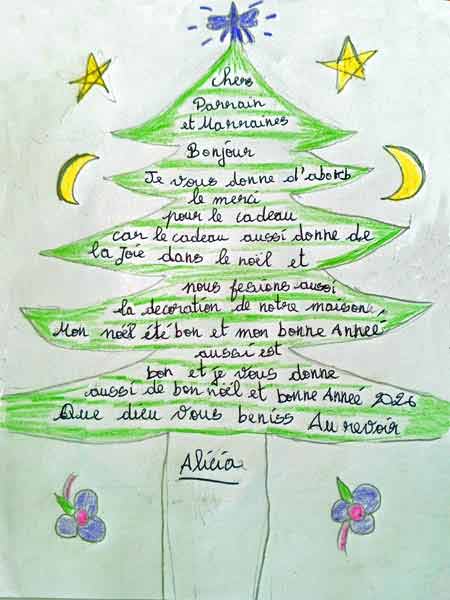 Chers
Parrain
et Marraines
Bonjour
Je vous donne d'abord
le merci
pour le cadeau
car le cadeau aussi donne de
la joie dans le noël et
nous fesions aussi
la decoration de notre maison.
Mon noël été bon et mon bonne Anneé
aussi est
bon et je vous donne
aussi de bon noël et bonne Anneé 2026
Que dieu vous beniss Au revoir
Alicia